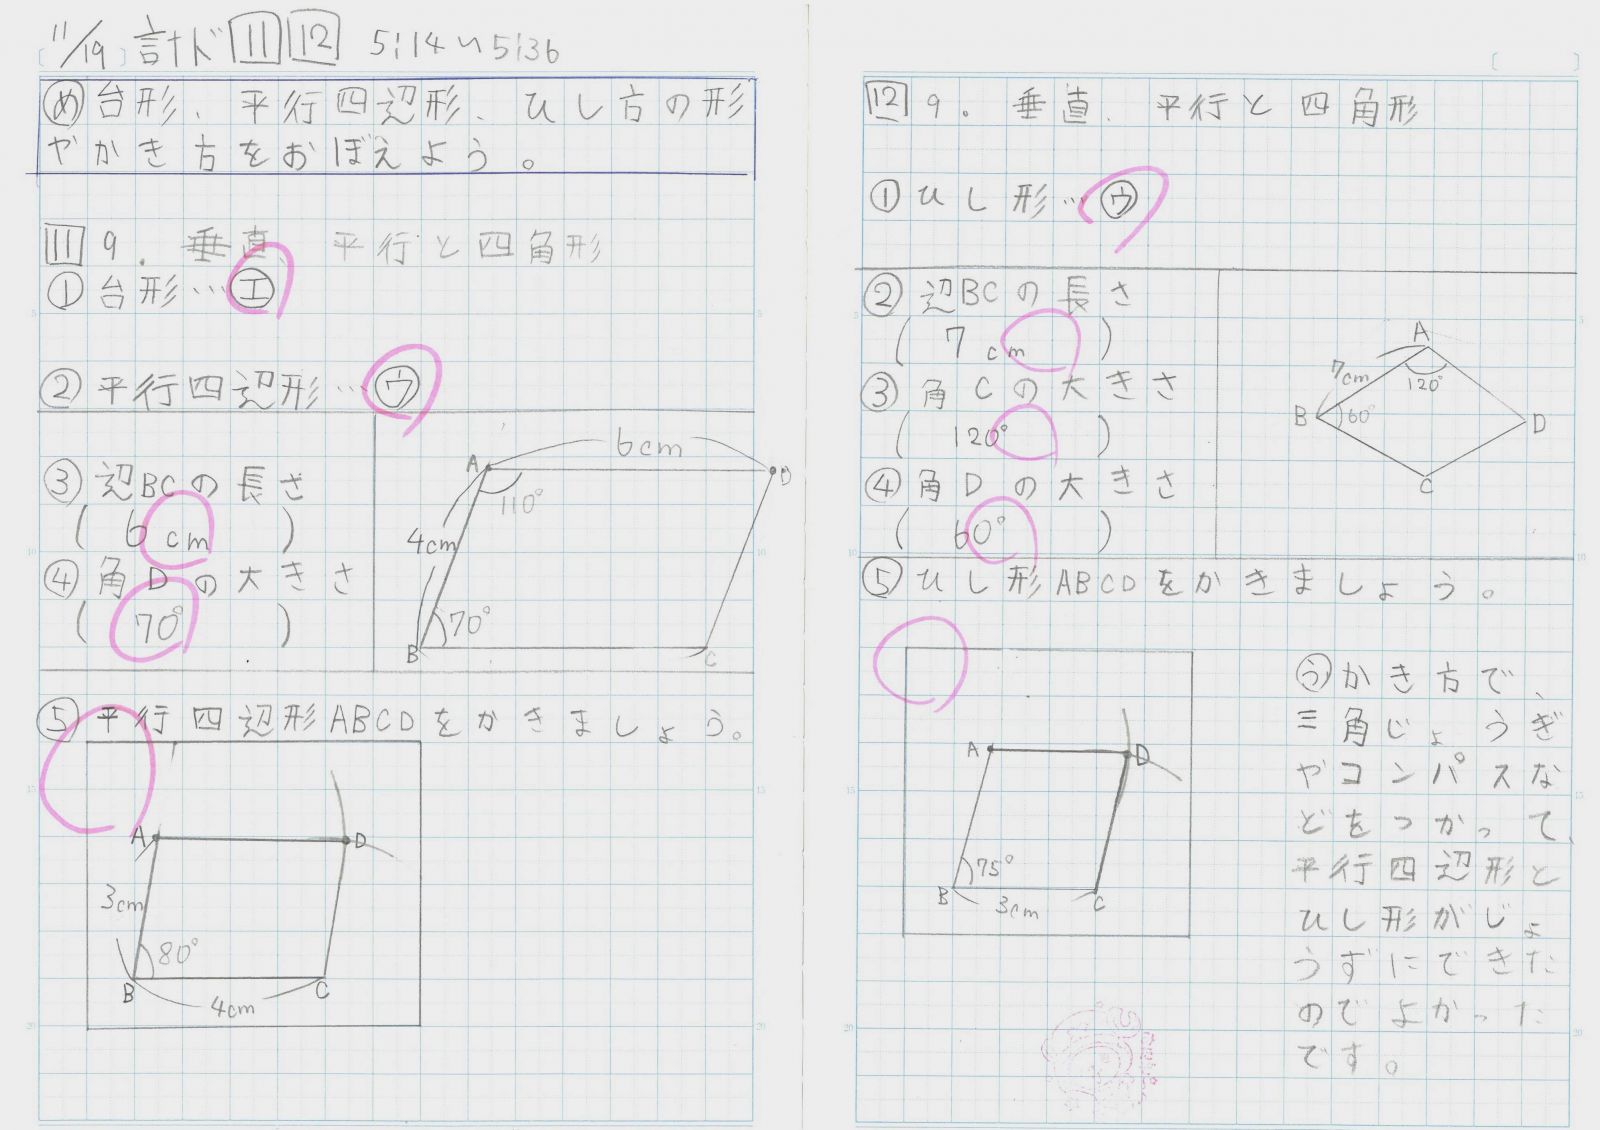 11/19 計ド 11 12 5:14〜5:36
め 台形、平行四辺形、ひし方の形
やかき方をおぼえよう。
11 9. 垂直、平行と四角形
① 台形…エ
② 平行四辺形…ウ
③ 辺BCの長さ
( 6cm )
④ 角Dの大きさ
( 70° )
A 6cm D
110°
4cm
70°
B C
⑤ 平行四辺形ABCDをかきましょう。
A D
3cm
80°
B C
4cm
12 9. 垂直、平行と四角形
① ひし形…ウ
② 辺BCの長さ
( 7cm )
③ 角Cの大きさ
( 120° )
④ 角Dの大きさ
( 60° )
A
7cm
120°
B 60° D
C
⑤ ひし形ABCDをかきましょう。
A D
75°
B C
3cm
う かき方で、
三角じょうぎ
やコンパスな
どをつかって、
平行四辺形と
ひし形がじょ
うずにできた
のでよかった
です。